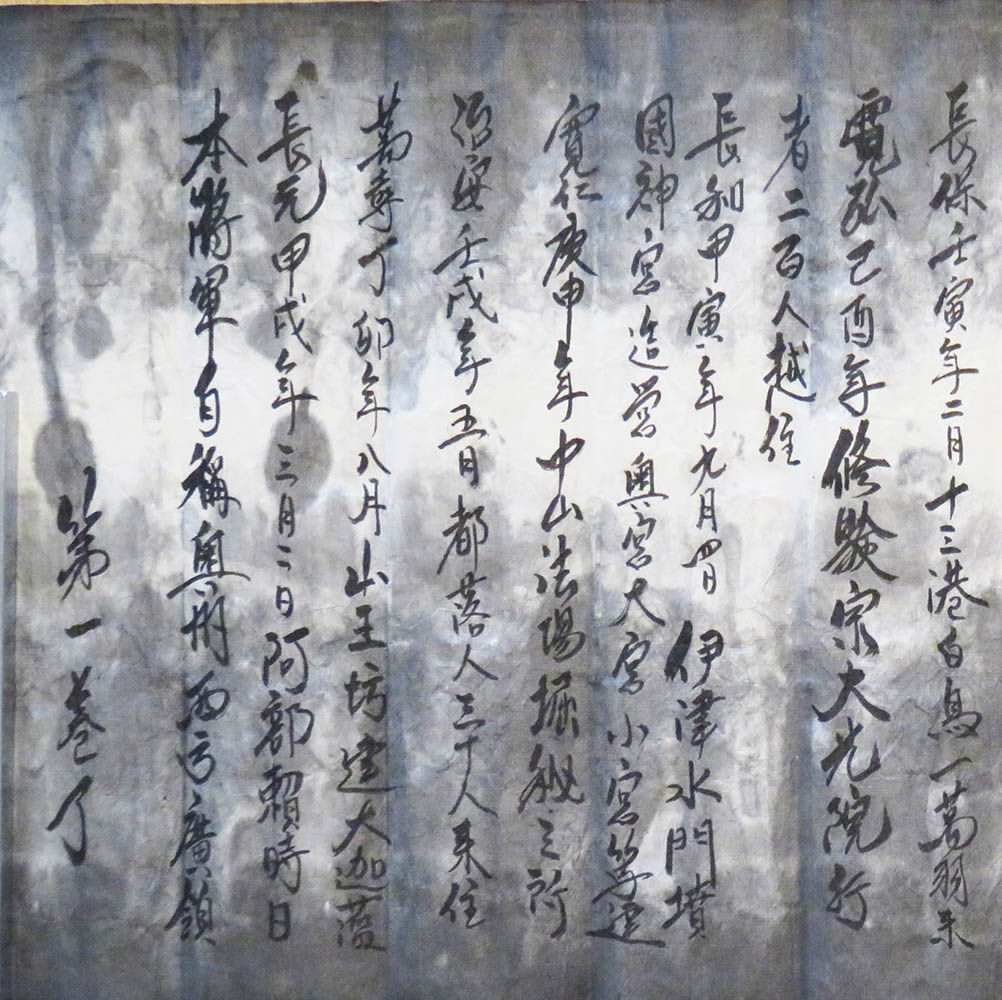 長保壬寅年二月十三港白鳥一萬羽来
寛弘己酉年修験宗大光院行
者二百人越住
長和甲寅年九月四日伊津水門墳
國神宮造営奥宮大宮小宮築建
寛仁庚申年中山法場掘秘之所
治安壬戌年五月都落人三十人来住
萬寿丁卯年八月山王坊建大迦藍
長元甲戌年三月二日阿部頼時日
本将軍自称奥州西方廣鎖
第一巻了